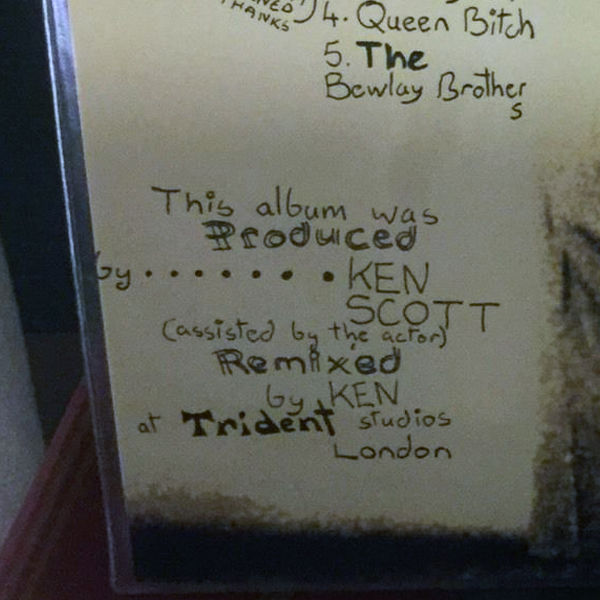 THANKS
4. Queen Bitch
5. The
Bewlay Brother
s
This album was
Produced
by . . . . . . . KEN
SCOTT
(assisted by the actor)
Remixed
by KEN
at Trident studios
London